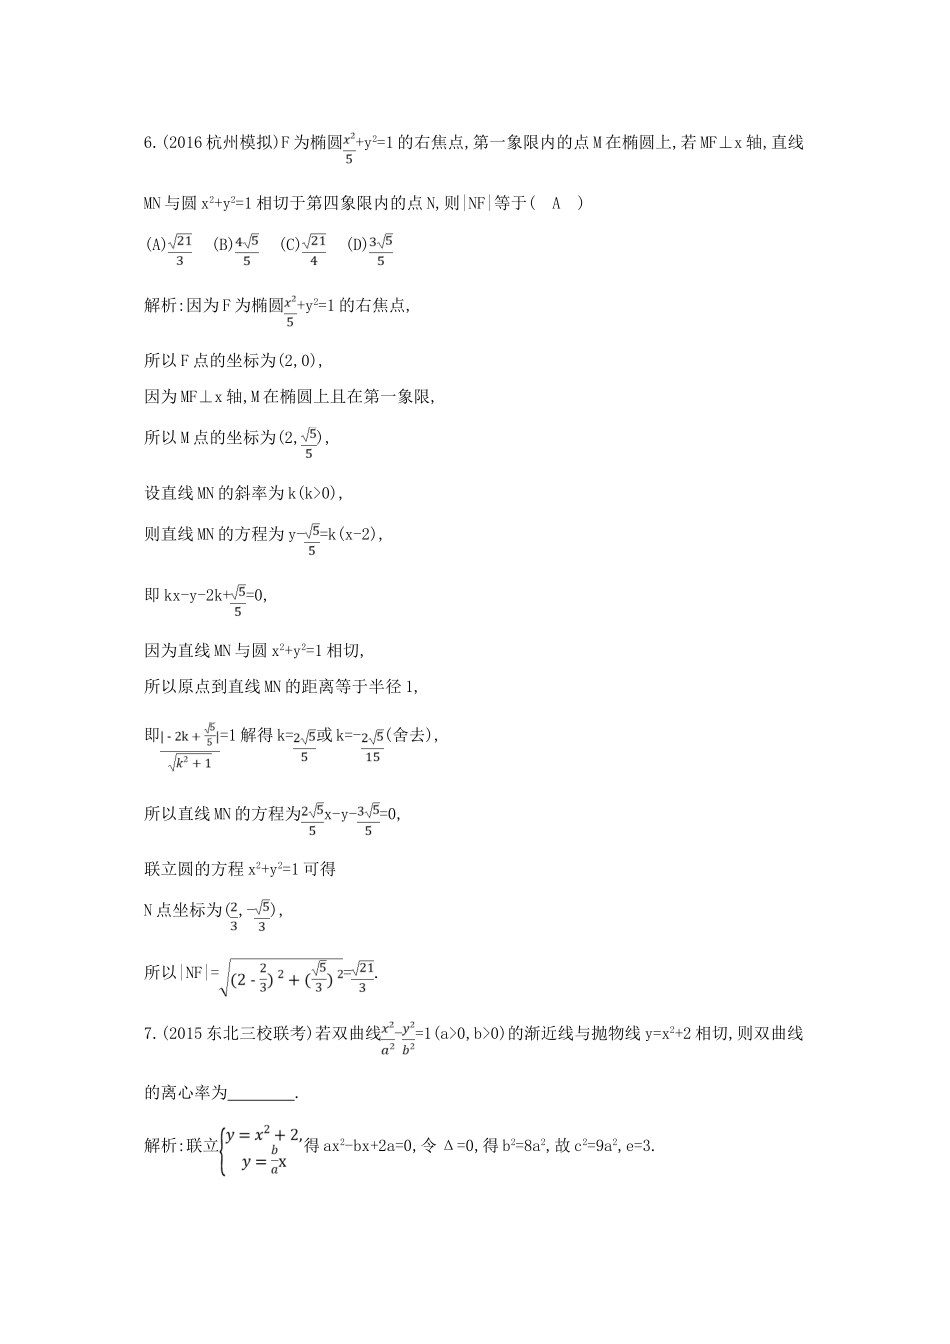 6.(2016杭州模拟)F为椭圆x²/5+y²=1的右焦点,第一象限内的点M在椭圆上,若MF⊥x轴,直线
MN与圆x²+y²=1相切于第四象限内的点N,则|NF|等于( A )
(A)√21/3 (B)4√5/5 (C)√21/4 (D)3√5/5
解析:因为F为椭圆x²/5+y²=1的右焦点,
所以F点的坐标为(2,0),
因为MF⊥x轴,M在椭圆上且在第一象限,
所以M点的坐标为(2,√5/5),
设直线MN的斜率为k(k>0),
则直线MN的方程为y-√5/5=k(x-2),
即kx-y-2k+√5/5=0,
因为直线MN与圆x²+y²=1相切,
所以原点到直线MN的距离等于半径1,
即|-2k+√5/5|/√(k²+1)=1解得k=2√5/5或k=-2√5/15(舍去),
所以直线MN的方程为2√5/5x-y-3√5/5=0,
联立圆的方程x²+y²=1可得
N点坐标为(2/3,-√5/3),
所以|NF|=√((2-2/3)²+(√5/3)²)=√21/3.
7.(2015东北三校联考)若双曲线x²/a²-y²/b²=1(a>0,b>0)的渐近线与抛物线y=x²+2相切,则双曲线
的离心率为________.
解析:联立{y=x²+2, y=b/ax得ax²-bx+2a=0,令Δ=0,得b²=8a²,故c²=9a²,e=3.